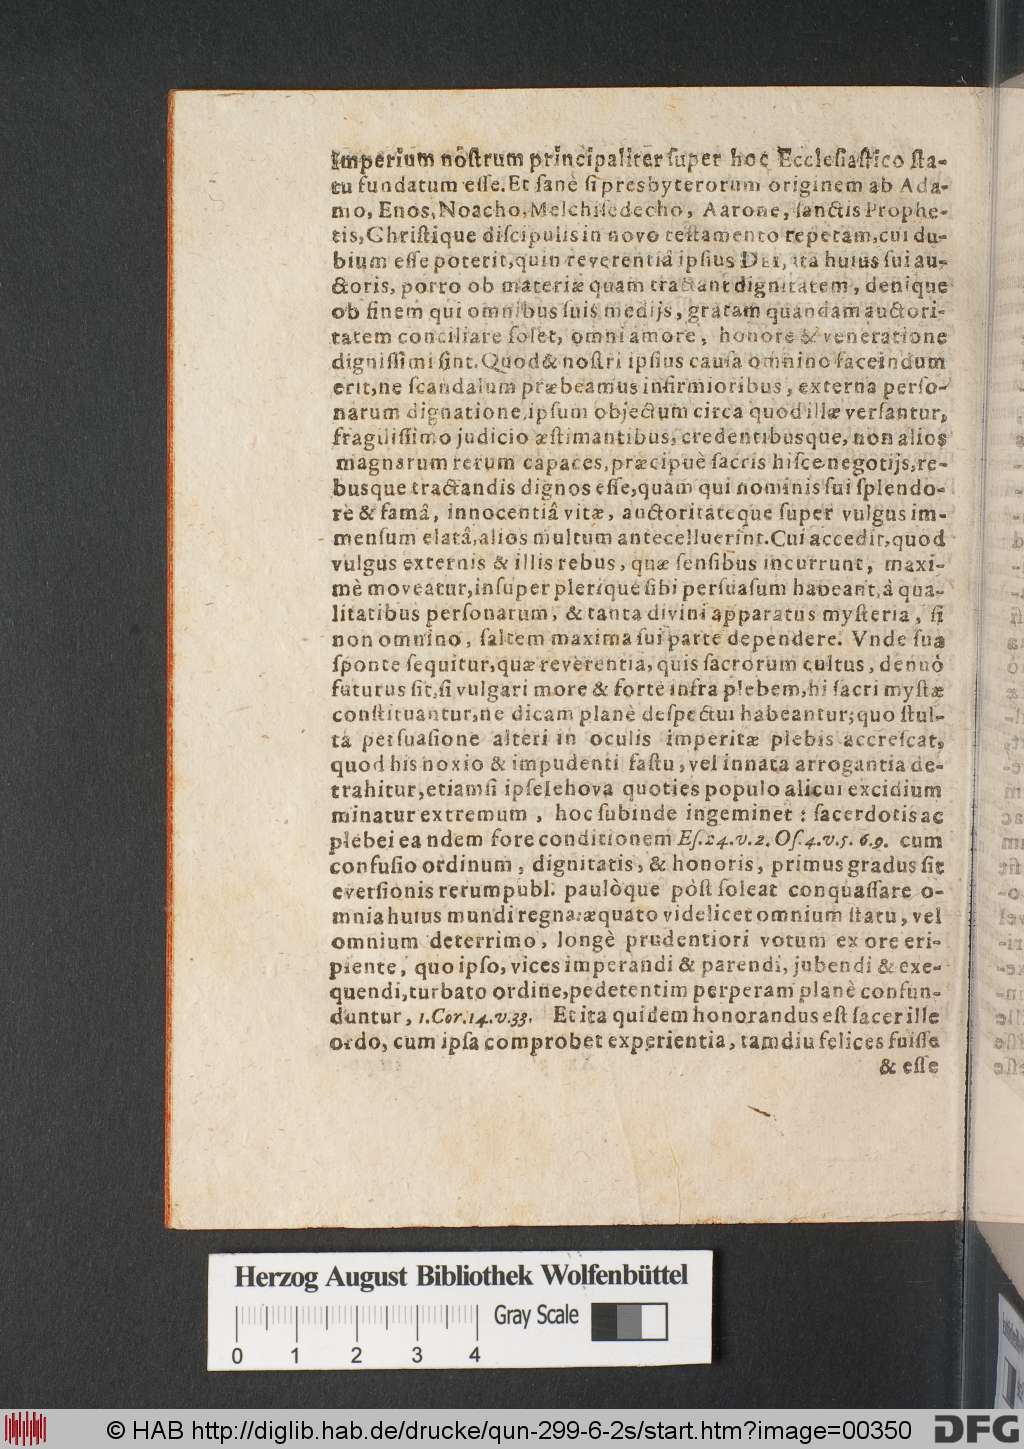 Imperium nôſtrum principaliter ſuper hoc Eccleſiaſtico ſta-
tu fundatum eſſe. Et ſanè ſi presbyterorum originem ab Ada-
mo, Enos, Noacho, Melchiſedecho, Aarone, ſanctis Prophe-
tis, Chriſtique diſcipulis in novo teſtamento repetam, cui du-
bium eſſe poterit, quin reverentiâ ipſius DEI, ita huius ſui au-
ctoris, porro ob materiæ quam tractant dignitatem, denique
ob finem qui omnibus ſuis medijs, gratam quandam auctori-
tatem conciliare ſolet, omni amore, honore & veneratione
digniſſimi ſint. Quod & noſtri ipſius cauſa omnino faceindum
erit, ne ſcandalum præbeamus infirmioribus, externa perſo-
narum dignatione, ipſum objectum circa quod illæ verſantur,
fragiliſſimo judicio æſtimantibus, credentibusque, non alios
magnarum rerum capaces, præcipuè ſacris hiſce negotijs, re-
busque tractandis dignos eſſe, quàm qui nominis ſui ſplendo-
re & famâ, innocentiâ vitæ, auctoritateque ſuper vulgus im-
menſum elatâ, alios multum antecelluerint. Cui accedit, quod
vulgus externis & illis rebus, quæ ſenſibus incurrunt, maxi-
mè moveatur, inſuper plerique ſibi perſuaſum habeant, â qua-
litatibus perſonarum, & tanta divini apparatus myſteria, ſi
non omnino, ſaltem maxima ſui parte dependere. Vnde ſua
ſponte ſequitur, quæ reverentia, quis ſacrorum cultus, denuò
futurus ſit, ſi vulgari more & fortè infra plebem, hi ſacri myſtæ
conſtituantur, ne dicam planè deſpectui habeantur; quo ſtul-
ta perſuaſione alteri in oculis imperitæ plebis accreſcat,
quod his noxio & impudenti faſtu, vel innata arrogantia de-
trahitur, etiamſi ipſe Iehova quoties populo alicui excidium
minatur extremum, hoc ſubinde ingeminet: ſacerdotis ac
plebei eandem fore conditionem Eſ. 24. v. 2. Oſ. 4. v. 5. 6. 9. cum
confuſio ordinum, dignitatis, & honoris, primus gradus ſit
everſionis rerumpubl. paulòque pòſt ſoleat conquaſſare o-
mnia huius mundi regna: æquato videlicet omnium ſtatu, vel
omnium deterrimo, longè prudentiori votum ex ore eri-
piente, quo ipſo, vices imperandi & parendi, jubendi & exe-
quendi, turbato ordine, pedetentim perperam planè confun-
duntur, 1. Cor. 14. v. 33. Et ita quidem honorandus eſt ſacer ille
ordo, cum ipſa comprobet experientia, tamdiu felices fuiſſe
& eſſe
Herzog August Bibliothek Wolfenbüttel
Gray Scale
0 1 2 3 4
© HAB http://diglib.hab.de/drucke/qun-299-6-2s/start.htm?image=00350
DFG